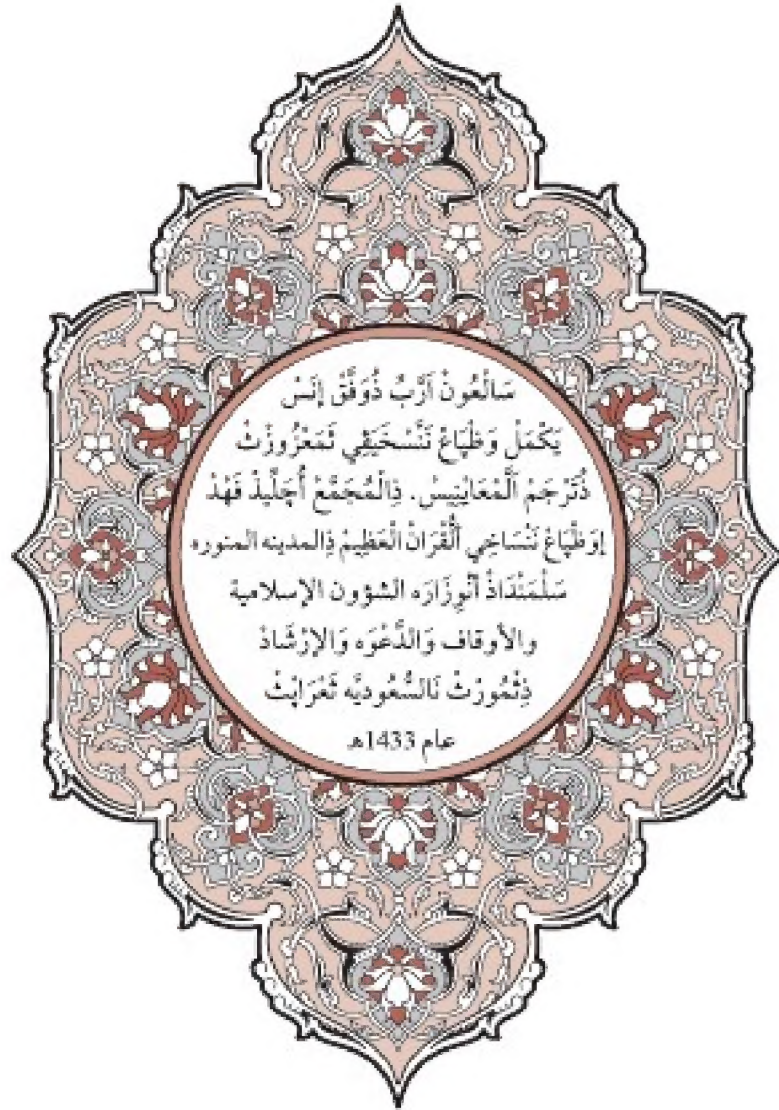 سَالْعُونْ آرَّبِّ ذُوَفَّقْ إِنَسْ
يَكْمَلْ وَطْبَاعْ نَنُّسْخَيَڤِي ثَمَعْزُوزْثْ
ذُتَرْجَمْ اَلْمَعَانِينِسْ. ذِالْمُجَمَّعْ أُجَلِّيذْ فَهْدْ
إِوَطْبَاعْ نَنْسَاخِي اَلْقُرَانْ الْعَظِيمْ ذِالمدينه المنوره
سَلْمَنْدَاذْ اَنْوِزَارَه الشؤون الإسلامية
والأوقاف وَالدَّعْوَه وَالإِرْشَادْ
ذِثْمُورْثْ نَالسُّعُوديَّه ثَعْرَابْثْ
عام 1433هـ